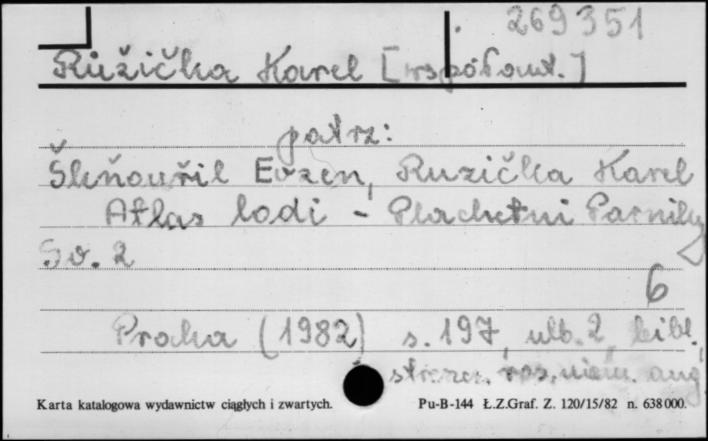 269351
Růžička Karel [współaut.]
patrz:
Škňouřil Evzen, Ruzička Karel
Atlas lodi - Plachetni Parniky
Sv. 2
6
Praha (1982) s. 197, ulb. 2, bibl.,
streszcz. ros, niem. ang
Karta katalogowa wydawnictw ciągłych i zwartych. Pu-B-144 Ł.Z.Graf. Z. 120/15/82 n. 638000.